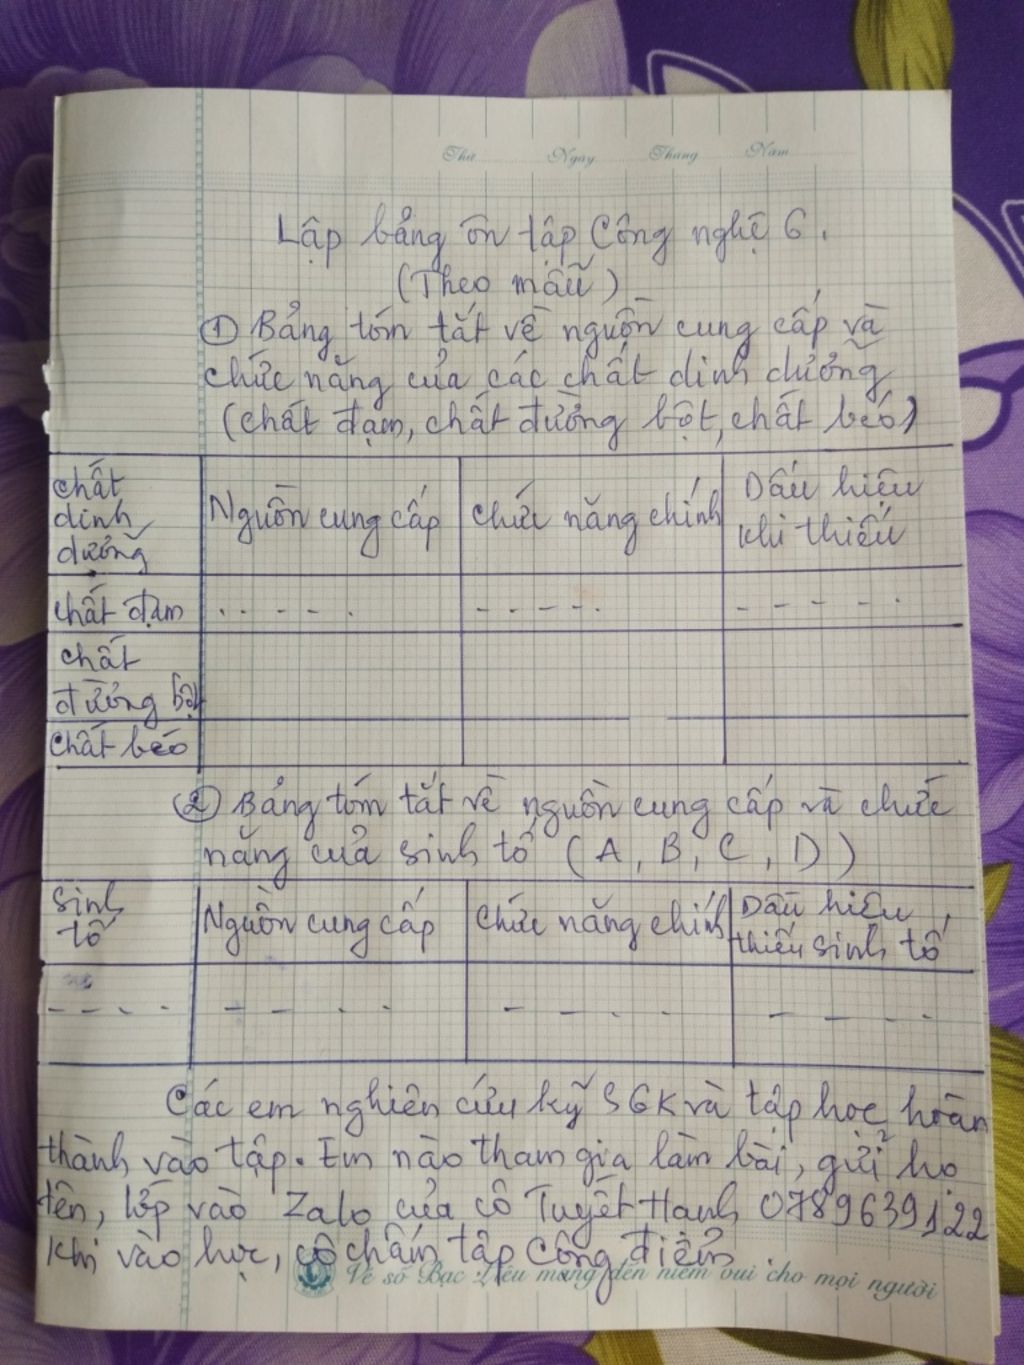 Thứ Ngày Tháng Năm
Lập bảng ôn tập Công nghệ 6.
(Theo mẫu)
① Bảng tóm tắt về nguồn cung cấp và
chức năng của các chất dinh dưỡng
(chất đạm, chất đường bột, chất béo)
chất dinh dưỡng | Nguồn cung cấp | chức năng chính | Dấu hiệu khi thiếu
chất đạm | . . - - . | - - - - . | - - - - .
chất đường bột
chất béo
② Bảng tóm tắt về nguồn cung cấp và chức
năng của sinh tố (A, B, C, D)
sinh tố | Nguồn cung cấp | chức năng chính | Dấu hiệu thiếu sinh tố
- - - . | - - . . | - - . . | - - - .
Các em nghiên cứu kỹ SGK và tập học hoàn
thành vào tập. Em nào tham gia làm bài, gửi họ
tên, lớp vào Zalo của cô Tuyết Hạnh 0789639122
Khi vào học, cô chấm tập cộng điểm.
Vé số Bạc Liêu mang đến niềm vui cho mọi người